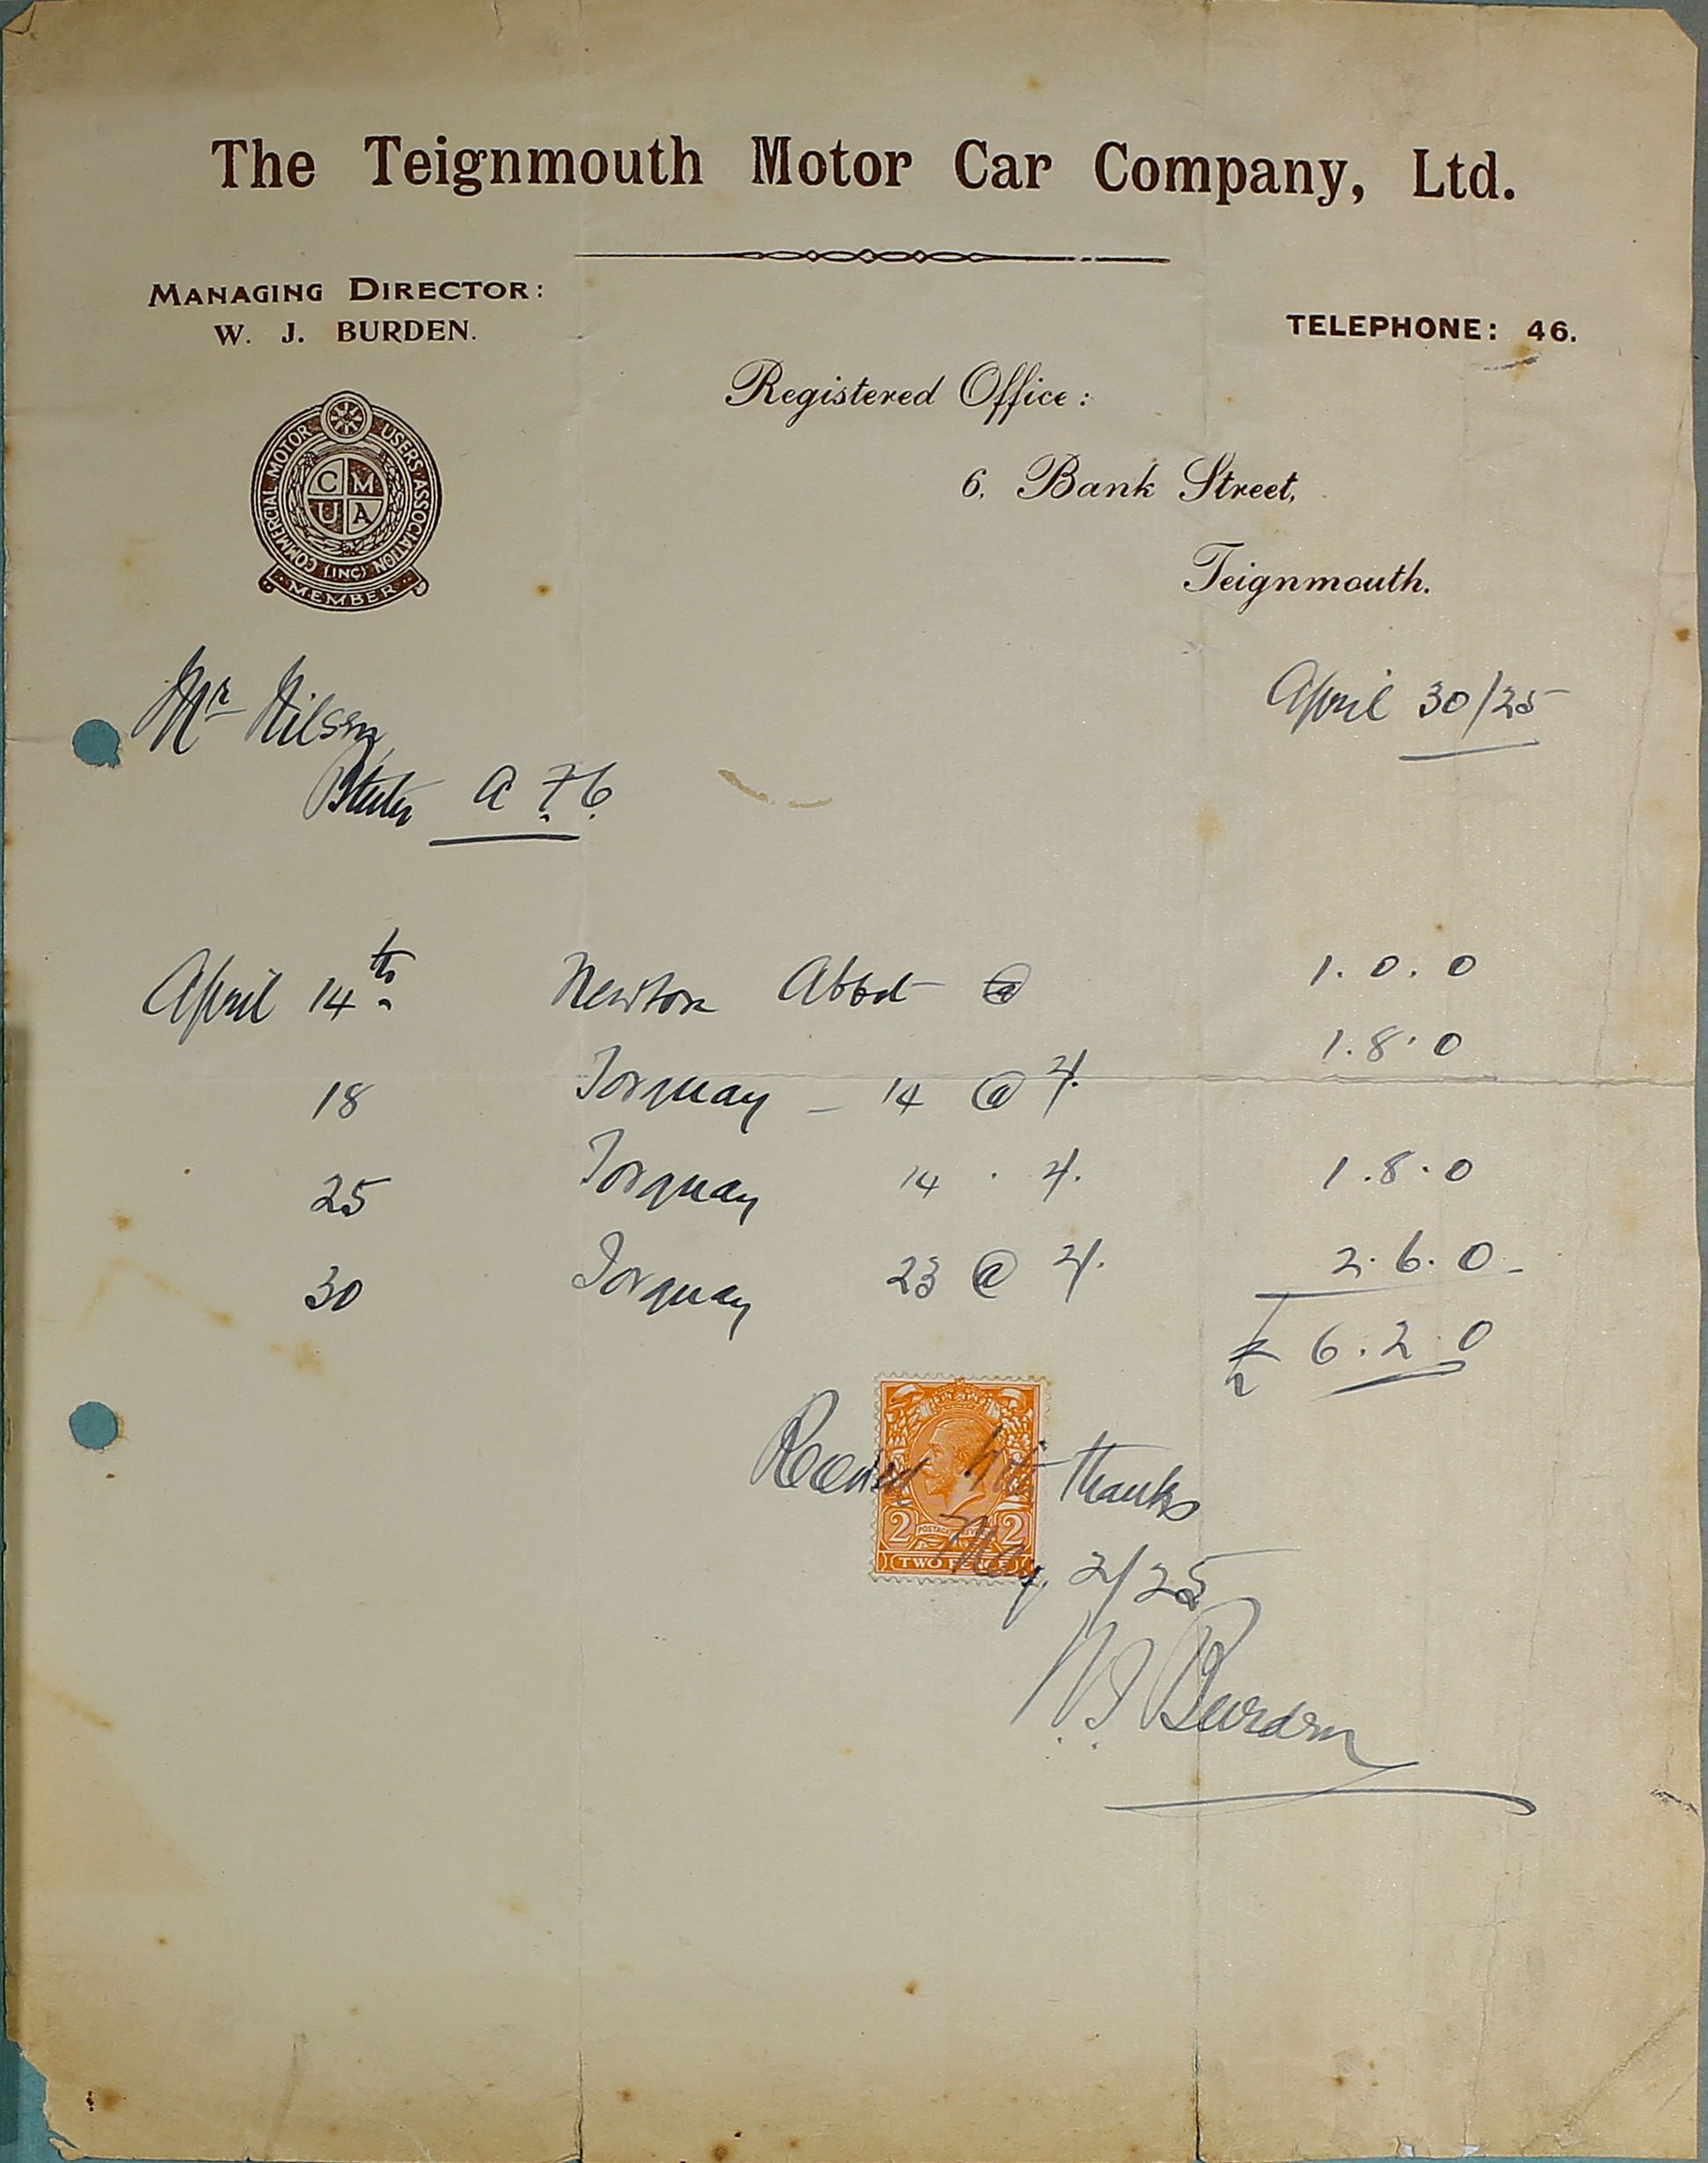 The Teignmouth Motor Car Company, Ltd.
MANAGING DIRECTOR:
W. J. BURDEN.
TELEPHONE: 46.
Registered Office:
6, Bank Street,
Teignmouth.
COMMERCIAL MOTOR USERS ASSOCIATION (INC)
C M
U A
MEMBER
April 30/25
Mr
A F C
April 14th Newton Abbot @ 1.0.0
18 Torquay - 14 @ 2/. 1.8.0
25 Torquay 14 . 2/. 1.8.0
30 Torquay 23 @ 2/. 2.6.0-
£ 6.2.0
Received with thanks
2 POSTAGE REVENUE 2
TWO PENCE
May 2/25
W J Burden